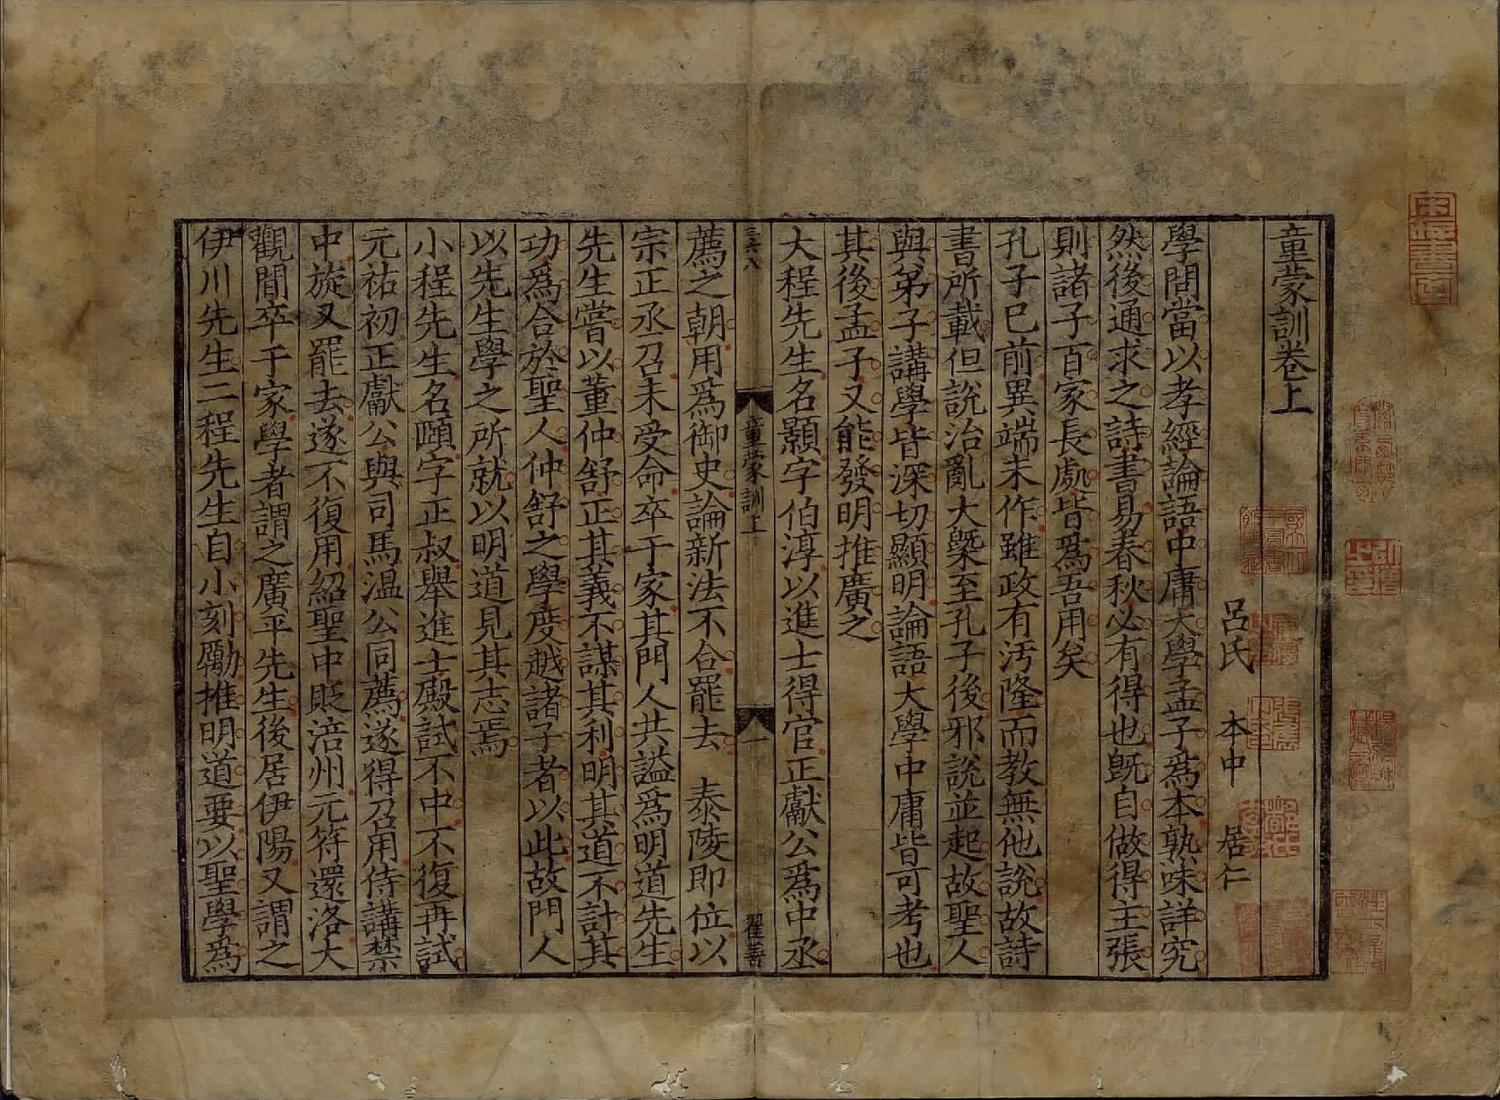 童蒙訓卷上
呂氏 本中 居仁
學問當以孝經論語中庸大學孟子爲本熟味詳究
然後通求之詩書易春秋必有得也旣自做得主張
則諸子百家長處皆爲吾用矣
孔子已前異端未作雖政有汚隆而教無他說故詩
書所載但說治亂大槩至孔子後邪說並起故聖人
與弟子講學皆深切顯明論語大學中庸皆可考也
其後孟子又能發明推廣之
大程先生名顥字伯淳以進士得官正獻公爲中丞
三六八
童蒙訓上
一
翟善
薦之朝用爲御史論新法不合罷去 泰陵即位以
宗正丞召未受命卒于家其門人共謚爲明道先生
先生嘗以董仲舒正其義不謀其利明其道不計其
功爲合於聖人仲舒之學度越諸子者以此故門人
以先生學之所就以明道見其志焉
小程先生名頤字正叔舉進士殿試不中不復再試
元祐初正獻公與司馬温公同薦遂得召用侍講禁
中旋又罷去遂不復用紹聖中貶涪州元符還洛大
觀間卒于家學者謂之廣平先生後居伊陽又謂之
伊川先生二程先生自小刻勵推明道要以聖學爲